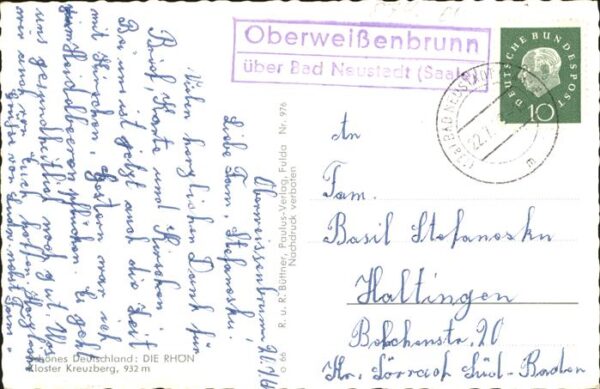 Oberweißenbrunn
über Bad Neustadt (Saale)
DEUTSCHE BUNDESPOST
10
BAD NEUSTADT
22.7.
Oberweissenbrunn 21.7.6
Liebe Fam. Stefanoski!
Vielen herzlichen Dank für
Brief, Karte und Kirschen.
Bei uns ist jetzt auch die Zeit
mit Kirschen. Gestern war ich
Heidelbeeren pflücken. Es geht
uns gesundheitlich noch gut. Was
wir auch von Euch hoffen. Herzl.
Grüße von
An
Fam.
Basil Stefanoskn
Haltingen
Belchenstr. 20
Kr. Lörrach Süd-Baden
R. u. R. Büttner, Paulus-Verlag, Fulda Nr. 976
Nachdruck verboten
O 66
Schönes Deutschland: DIE RHÖN
Kloster Kreuzberg, 932 m